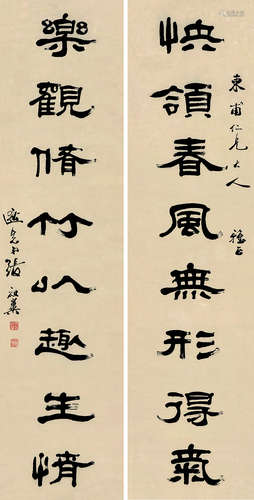 東甫仁兄大人 雅正
快領春風無形得氣
樂觀脩竹以趣生情
逖先弟張祖翼